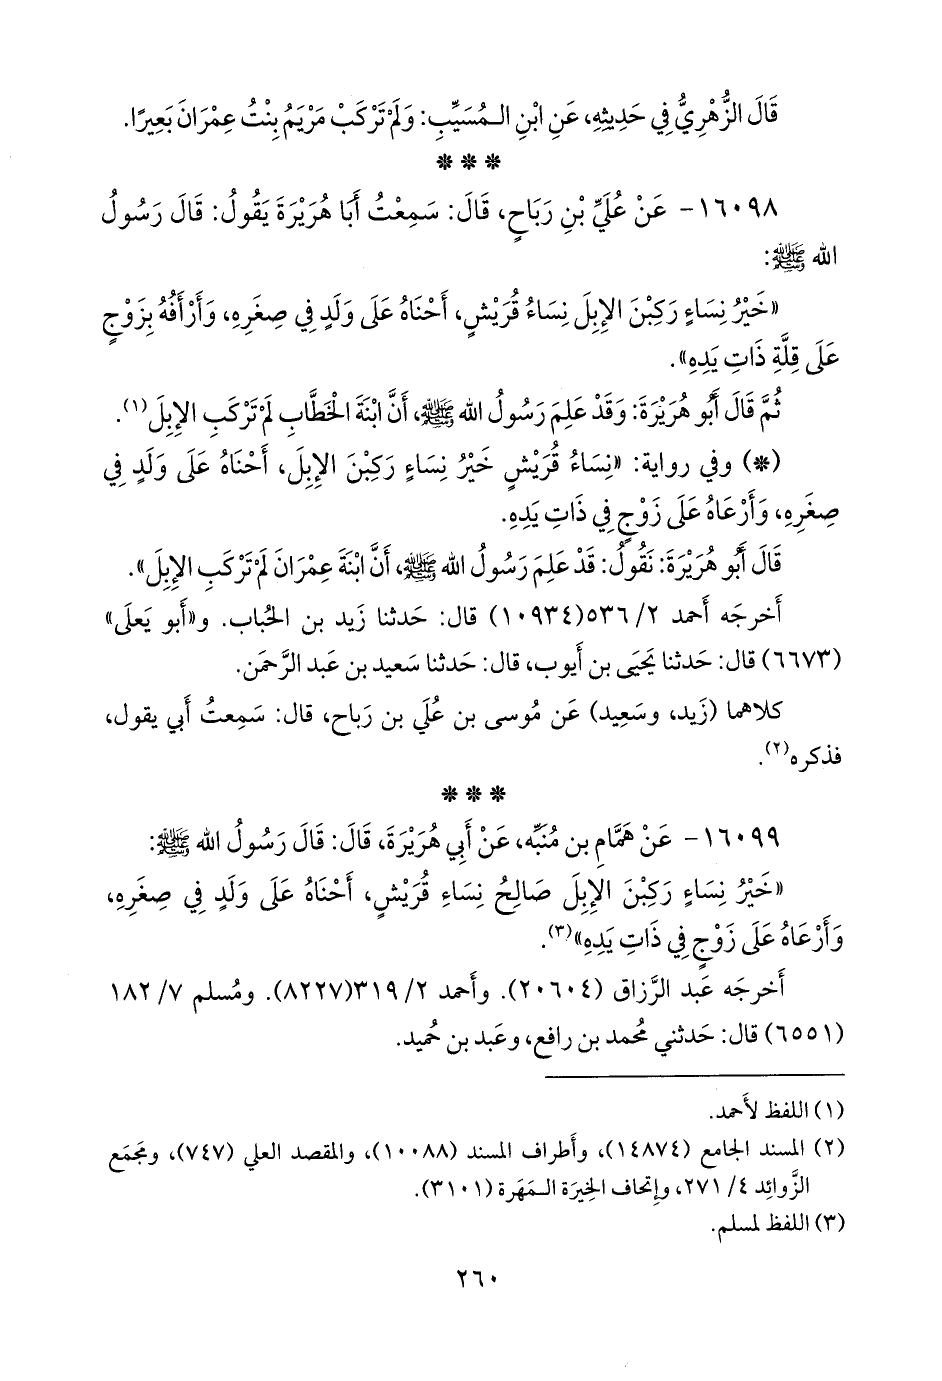 قَالَ الزُّهْرِيُّ فِي حَدِيثِهِ، عَنِ ابْنِ الـمُسَيِّبِ: وَلَمْ تَرْكَبْ مَرْيَمُ بِنْتُ عِمْرَانَ بَعِيرًا.
* * *
١٦٠٩٨- عَنْ عُلَيِّ بْنِ رَبَاحٍ، قَالَ: سَمِعْتُ أَبَا هُرَيْرَةَ يَقُولُ: قَالَ رَسُولُ
الله ﷺ:
«خَيْرُ نِسَاءٍ رَكِبْنَ الإِبِلَ نِسَاءُ قُرَيْشٍ، أَحْنَاهُ عَلَى وَلَدٍ فِي صِغَرِهِ، وَأَرْأَفُهُ بِزَوْجٍ
عَلَى قِلَّةِ ذَاتِ يَدِهِ».
ثُمَّ قَالَ أَبُو هُرَيْرَةَ: وَقَدْ عَلِمَ رَسُولُ الله ﷺ، أَنَّ ابْنَةَ الخَطَّابِ لَمْ تَرْكَبِ الإِبِلَ(١).
(*) وفي رواية: «نِسَاءُ قُرَيْشٍ خَيْرُ نِسَاءٍ رَكِبْنَ الإِبِلَ، أَحْنَاهُ عَلَى وَلَدٍ فِي
صِغَرِهِ، وَأَرْعَاهُ عَلَى زَوْجٍ فِي ذَاتِ يَدِهِ.
قَالَ أَبُو هُرَيْرَةَ: نَقُولُ: قَدْ عَلِمَ رَسُولُ الله ﷺ، أَنَّ ابْنَةَ عِمْرَانَ لَمْ تَرْكَبِ الإِبِلَ».
أَخرجَه أَحمد ٢/ ٥٣٦(١٠٩٣٤) قال: حَدثنا زَيد بن الحُباب. و«أَبو يَعلَى»
(٦٦٧٣) قال: حَدثنا يَحيَى بن أَيوب، قال: حَدثنا سَعيد بن عَبد الرَّحمَن.
كلاهما (زَيد، وسَعِيد) عَن مُوسى بن عُلَي بن رَباح، قال: سَمِعتُ أَبي يقول،
فذكره(٢).
* * *
١٦٠٩٩- عَنْ هَمَّامِ بن مُنَبِّه، عَنْ أَبِي هُرَيْرَةَ، قَالَ: قَالَ رَسُولُ الله ﷺ:
«خَيْرُ نِسَاءٍ رَكِبْنَ الإِبِلَ صَالِحُ نِسَاءِ قُرَيْشٍ، أَحْنَاهُ عَلَى وَلَدٍ فِي صِغَرِهِ،
وَأَرْعَاهُ عَلَى زَوْجٍ فِي ذَاتِ يَدِهِ»(٣).
أَخرجَه عَبد الرَّزاق (٢٠٦٠٤). وأَحمد ٢/ ٣١٩(٨٢٢٧). ومُسلم ٧/ ١٨٢
(٦٥٥١) قال: حَدثني مُحمد بن رافع، وعَبد بن حُميد.
(١) اللفظ لأَحمد.
(٢) المسند الجامع (١٤٨٧٤)، وأَطراف المسند (١٠٠٨٨)، والمقصد العلي (٧٤٧)، ومَجمَع
الزَّوائِد ٤/ ٢٧١، وإتحاف الخِيرَة الـمَهَرة (٣١٠١).
(٣) اللفظ لمسلم.
٢٦٠